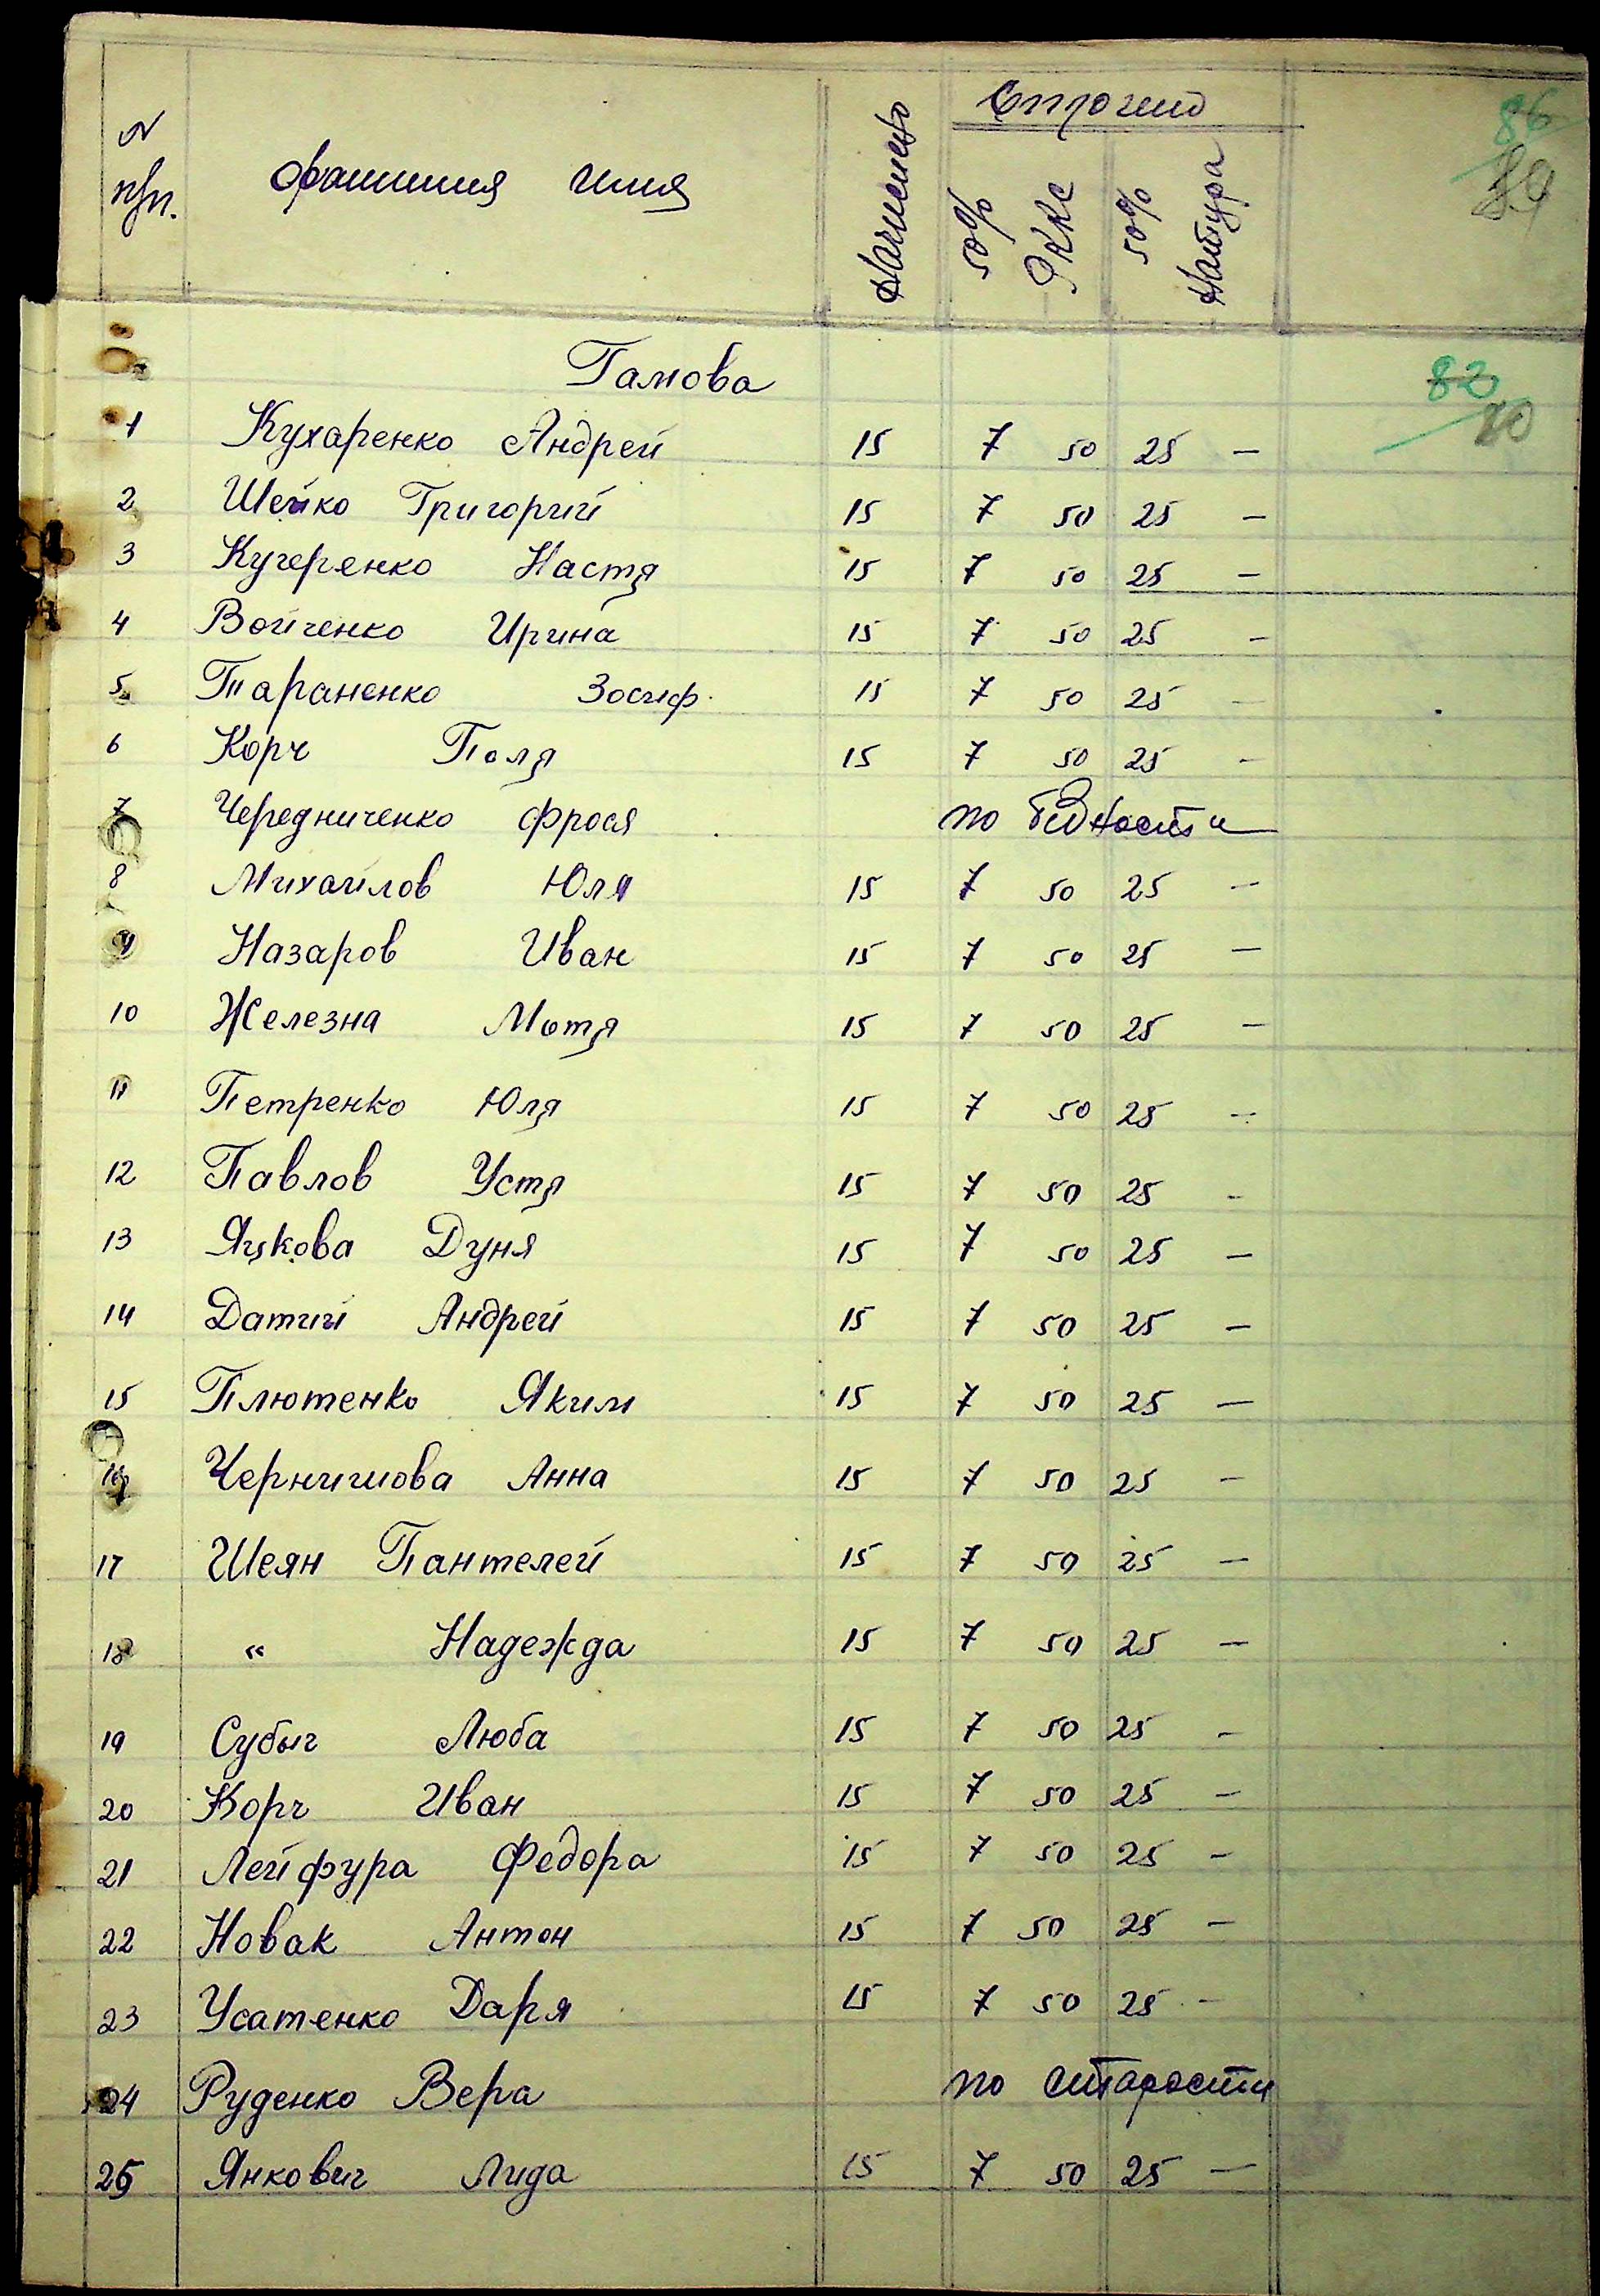 N п/п. Фамилия имя Начислено
50% РККС 50% Натура
86
Гамова
82
80
1 Кухаренко Андрей 15 7 50 25 –
2 Шейко Григорий 15 7 50 25 –
3 Кучеренко Настя 15 7 50 25 –
4 Войченко Ирина 15 7 50 25 –
5 Тараненко Зосиф. 15 7 50 25 –
6 Корч Поля 15 7 50 25 –
7 Чередниченко Фрося по бедности
8 Михайлов Юля 15 7 50 25 –
9 Назаров Иван 15 7 50 25 –
10 Железна Мотя 15 7 50 25 –
11 Петренко Юля 15 7 50 25 –
12 Павлов Устя 15 7 50 25 –
13 Яцкова Дуня 15 7 50 25 –
14 Датий Андрей 15 7 50 25 –
15 Плютенко Яким 15 7 50 25 –
16 Чернишова Анна 15 7 50 25 –
17 Шеян Пантелей 15 7 50 25 –
18 « Надежда 15 7 50 25 –
19 Субыч Люба 15 7 50 25 –
20 Корч Иван 15 7 50 25 –
21 Лейфура Федора 15 7 50 25 –
22 Новак Антон 15 7 50 25 –
23 Усатенко Даря 15 7 50 25 –
24 Руденко Вера по старости
25 Янкович Лида 15 7 50 25 –